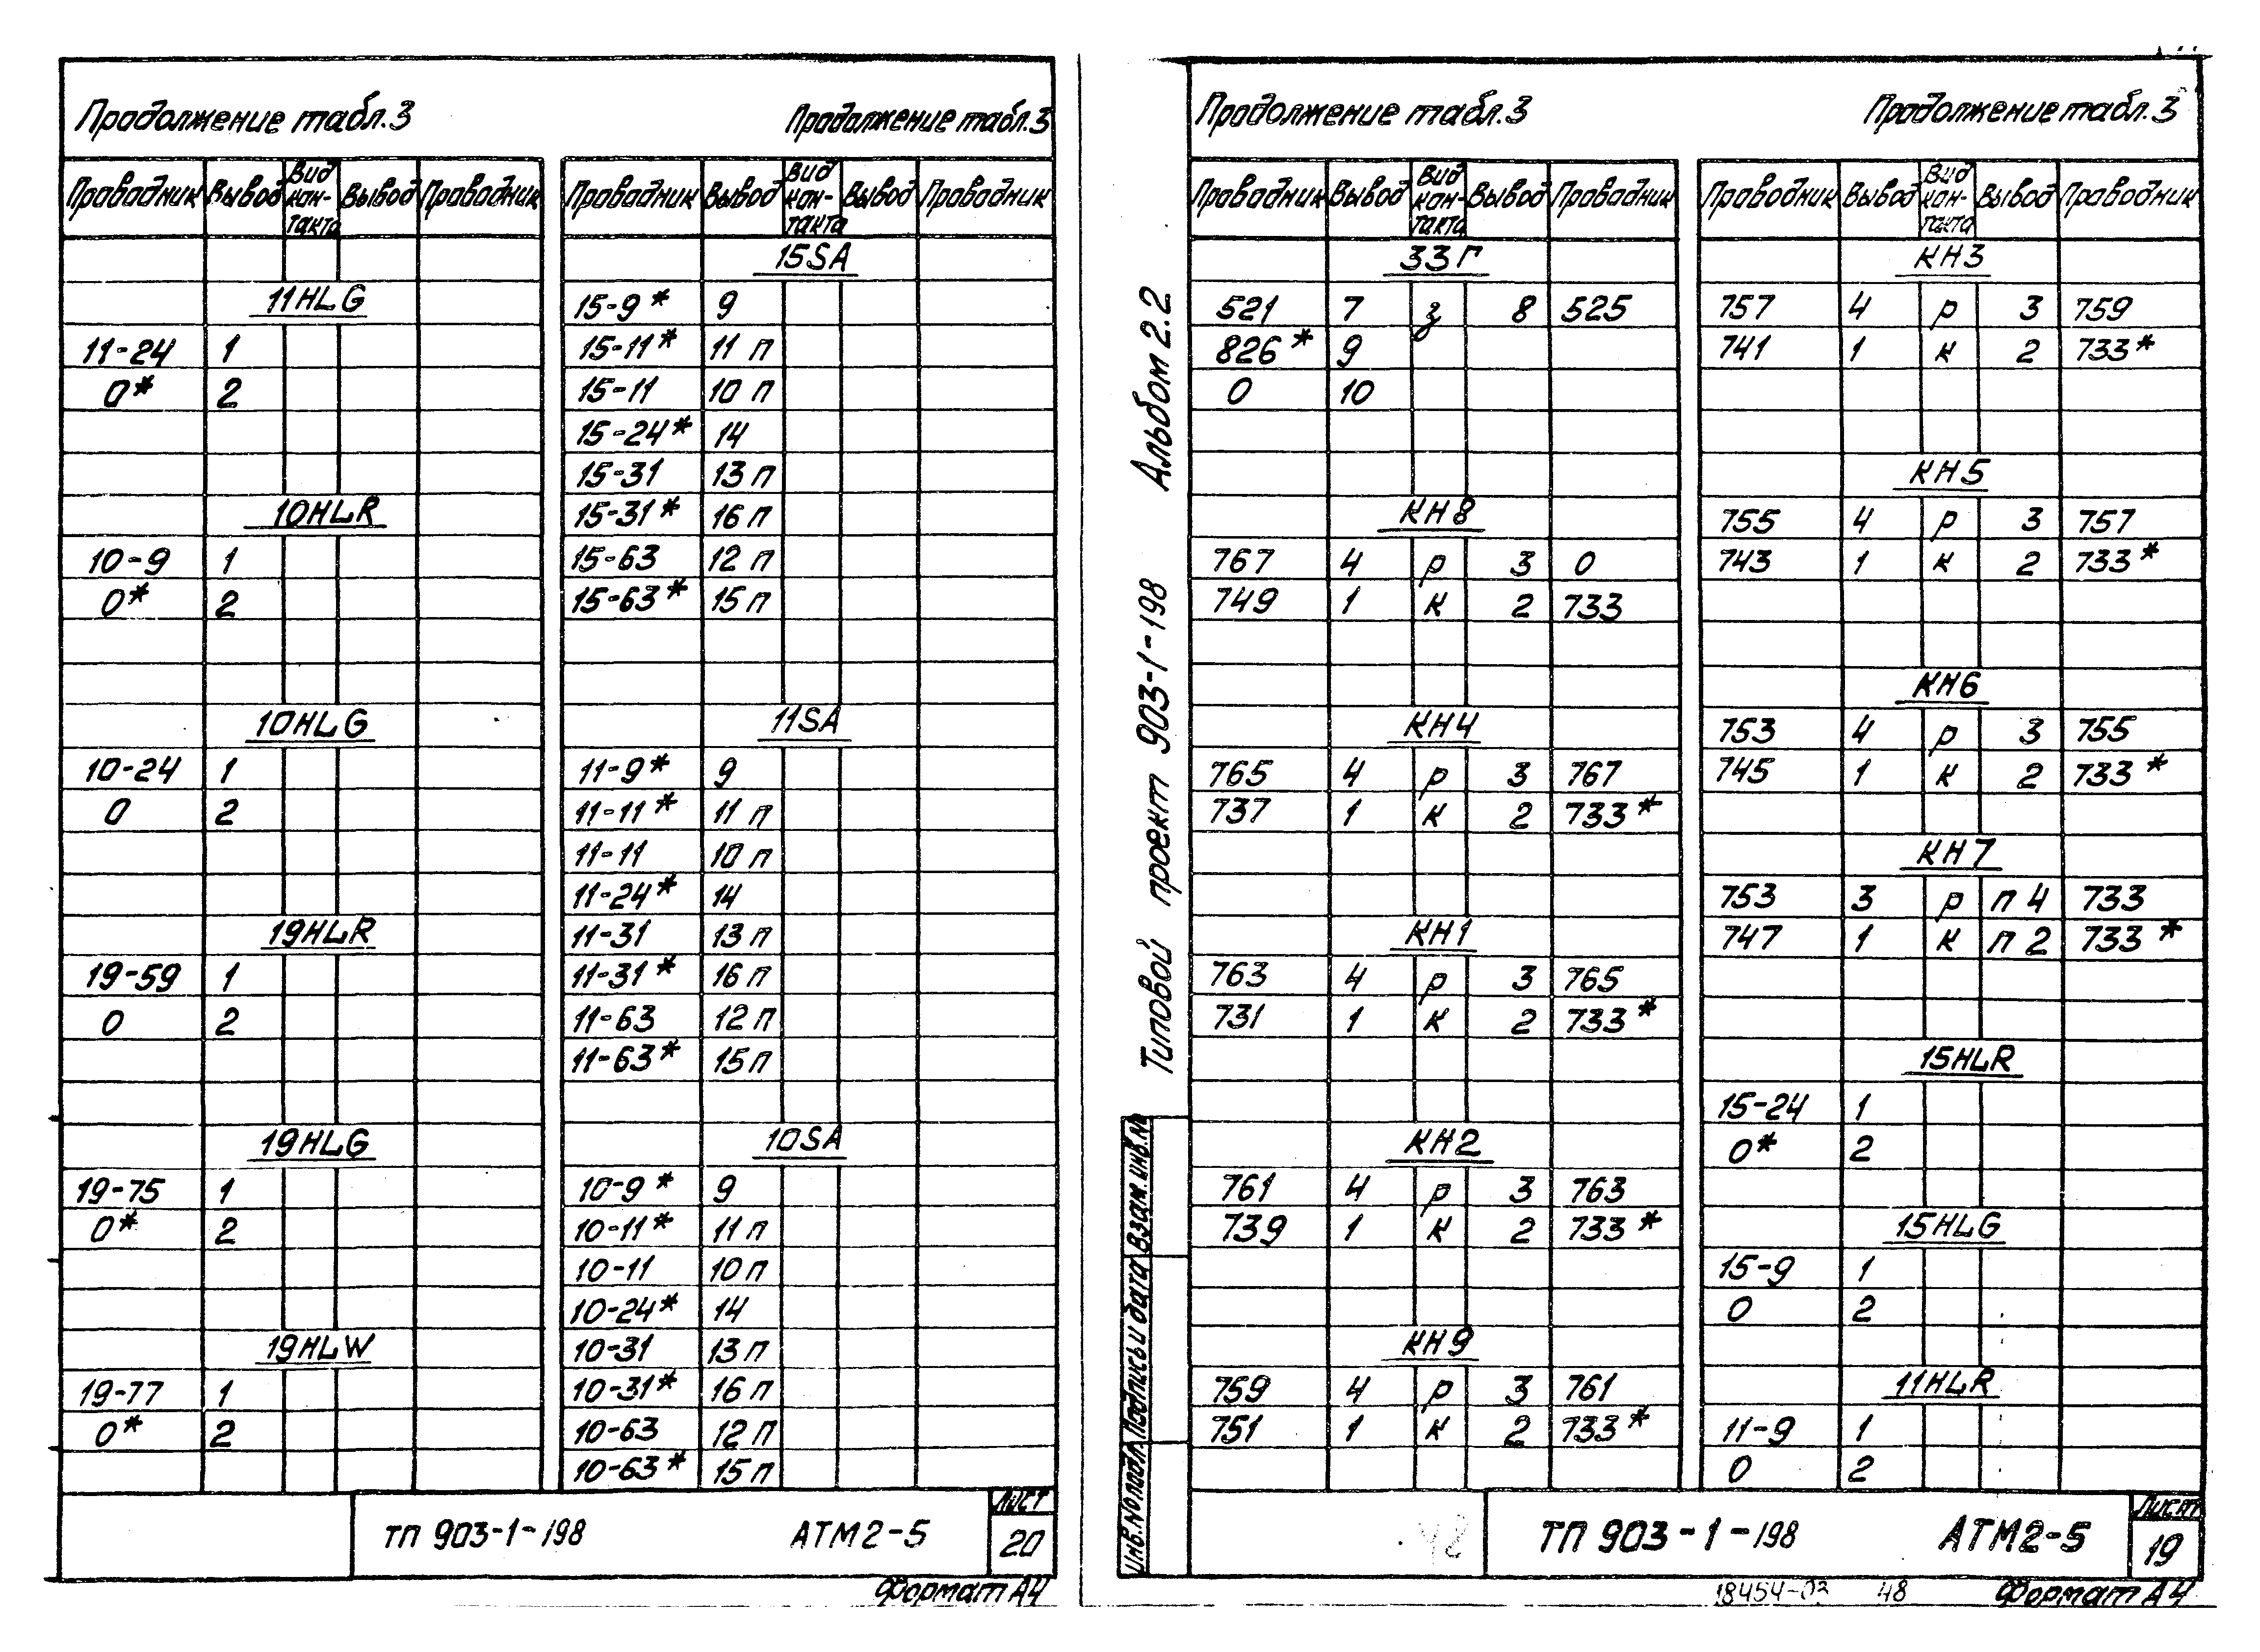 Продолжение табл.3
Проводник Вывод Вид кон-такта Вывод Проводник
11HLG
11-24 1
0* 2
10HLR
10-9 1
0* 2
10HLG
10-24 1
0 2
19HLR
19-59 1
0 2
19HLG
19-75 1
0* 2
19HLW
19-77 1
0* 2
Продолжение табл.3
Проводник Вывод Вид кон-такта Вывод Проводник
15SA
15-9* 9
15-11* 11 п
15-11 10 п
15-24* 14
15-31 13 п
15-31* 16 п
15-63 12 п
15-63* 15 п
11SA
11-9* 9
11-11* 11 п
11-11 10 п
11-24* 14
11-31 13 п
11-31* 16 п
11-63 12 п
11-63* 15 п
10SA
10-9* 9
10-11* 11 п
10-11 10 п
10-24* 14
10-31 13 п
10-31* 16 п
10-63 12 п
10-63* 15 п
ТП 903-1-198 АТМ2-5
Лист
20
Формат А4
Альбом 2.2
Типовой проект 903-1-198
Инв.№подл. Подпись и дата Взам.инв.№
Продолжение табл.3
Проводник Вывод Вид кон-такта Вывод Проводник
33Г
521 7 з 8 525
826* 9
0 10
КН8
767 4 р 3 0
749 1 к 2 733
КН4
765 4 р 3 767
737 1 к 2 733*
КН1
763 4 р 3 765
731 1 к 2 733*
КН2
761 4 р 3 763
739 1 к 2 733*
КН9
759 4 р 3 761
751 1 к 2 733*
Продолжение табл.3
Проводник Вывод Вид кон-такта Вывод Проводник
КН3
757 4 р 3 759
741 1 к 2 733*
КН5
755 4 р 3 757
743 1 к 2 733*
КН6
753 4 р 3 755
745 1 к 2 733*
КН7
753 3 р п 4 733
747 1 к п 2 733*
15HLR
15-24 1
0* 2
15HLG
15-9 1
0 2
11HLR
11-9 1
0 2
42
ТП 903-1-198 АТМ2-5
Лист
19
18454-03 48 Формат А4